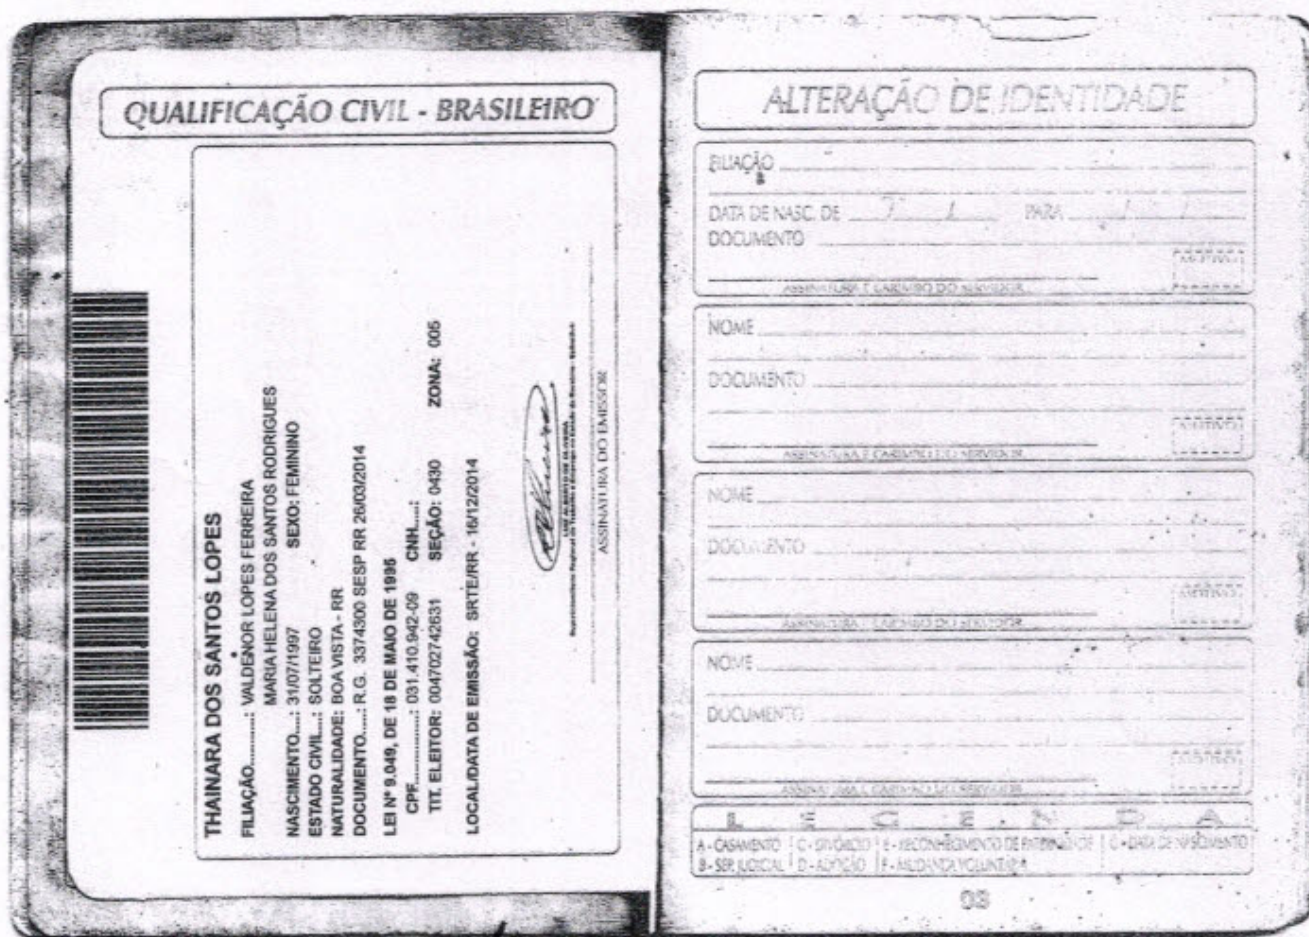 QUALIFICAÇÃO CIVIL - BRASILEIRO
THAINARA DOS SANTOS LOPES
FILIAÇÃO............: VALDENOR LOPES FERREIRA
MARIA HELENA DOS SANTOS RODRIGUES
NASCIMENTO.....: 31/07/1997 SEXO: FEMININO
ESTADO CIVIL.....: SOLTEIRO
NATURALIDADE: BOA VISTA - RR
DOCUMENTO.....: R.G. 3374300 SESP RR 26/03/2014
LEI Nº 9.049, DE 18 DE MAIO DE 1995
CPF.................: 031.410.942-09 CNH.....:
TIT. ELEITOR: 004702742631 SEÇÃO: 0430 ZONA: 005
LOCAL/DATA DE EMISSÃO: SRTE/RR - 16/12/2014
ASSINATURA DO EMISSOR
ALTERAÇÃO DE IDENTIDADE
FILIAÇÃO
DATA DE NASC. DE / / PARA / /
DOCUMENTO
MOTIVO
ASSINATURA E CARIMBO DO SERVIDOR
NOME
DOCUMENTO
MOTIVO
ASSINATURA E CARIMBO DO SERVIDOR
NOME
DOCUMENTO
MOTIVO
ASSINATURA E CARIMBO DO SERVIDOR
NOME
DOCUMENTO
MOTIVO
ASSINATURA E CARIMBO DO SERVIDOR
LEGENDA
A - CASAMENTO C - DIVÓRCIO E - RECONHECIMENTO DE PATERNIDADE G - DATA DE NASCIMENTO
B - SEP. JUDICIAL D - ADOÇÃO F - MUDANÇA VOLUNTÁRIA
03